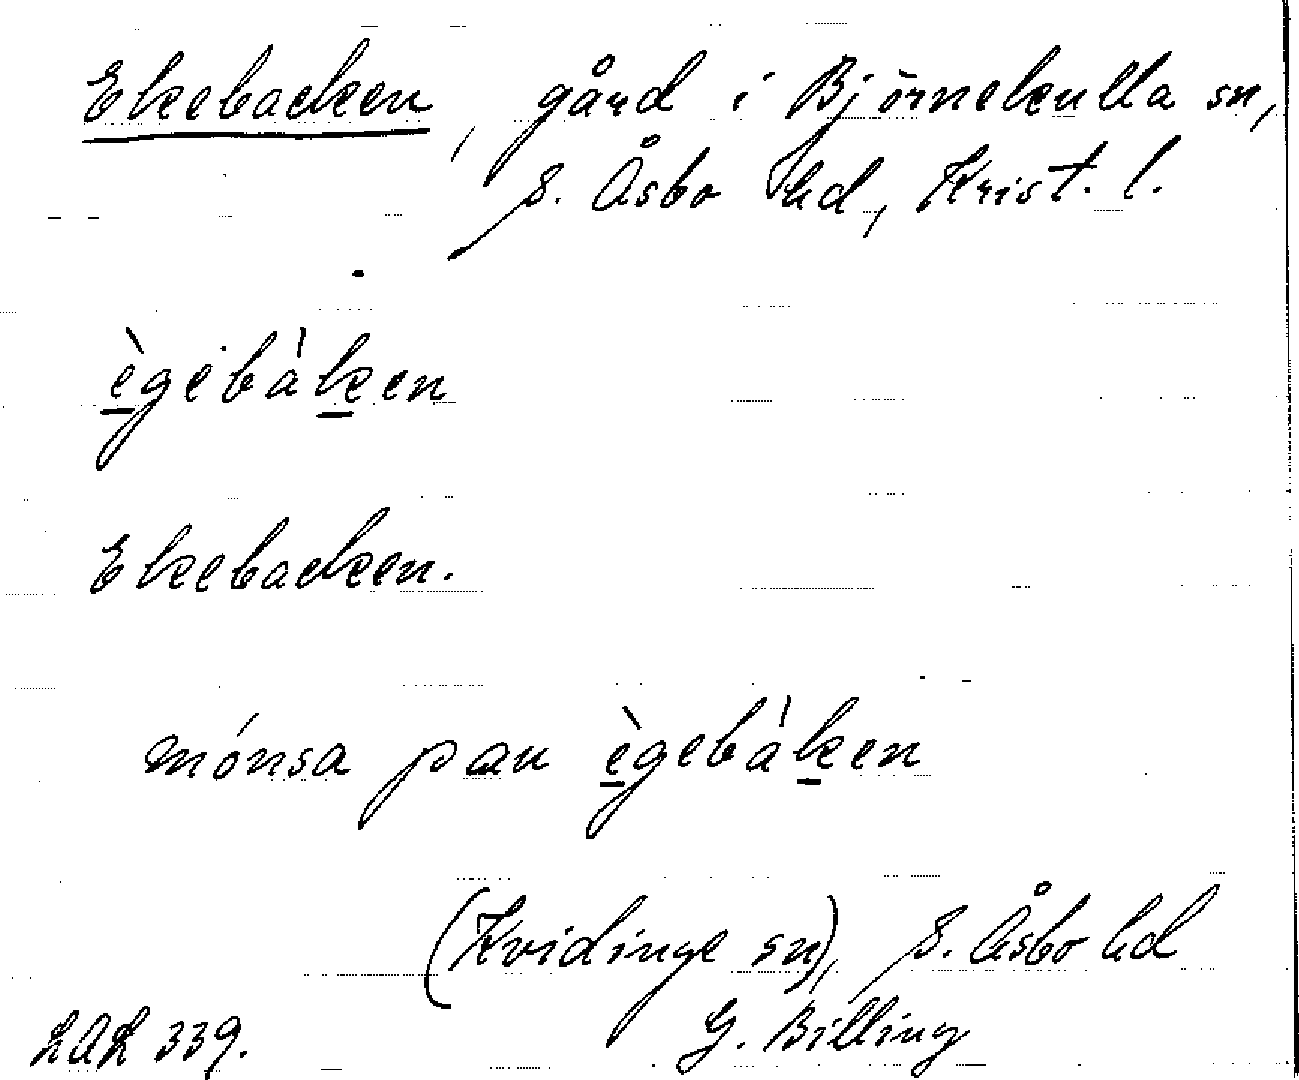 Ekebacken, gård i Björnekulla sn,
S. Åsbo hd, Krist. l.
ègebàken
Ekebacken.
mónsa pau ègebàken
(Kvidinge sn), S. Åsbo hd
LAL 339. G. Billing